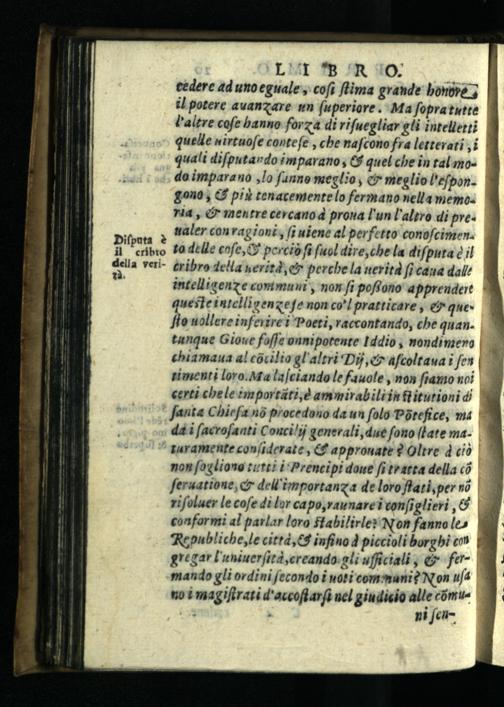 LIBRO.
cedere ad uno eguale, cosi stima grande honore
il potere auanzare un superiore. Ma sopra tutte
l'altre cose hanno forza di risuegliar gli intelletti
quelle uirtuose contese, che nascono fra letterati, i
quali disputando imparano, & quel che in tal mo-
do imparano, lo sanno meglio, & meglio l'espon-
gono, & più tenacemente lo fermano nella memo-
ria, & mentre cercano à proua l'un l'altro di pre-
ualer con ragioni, si uiene al perfetto conoscimen-
Disputa è
il cribro
della veri-
tà.
to delle cose, & perciò si suol dire, che la disputa è il
cribro della uerità, & perche la uerità si caua dalle
intelligenze communi, non si possono apprendere
queste intelligenze se non co'l pratticare, & que-
sto uollere inferire i Poeti, raccontando, che quan-
tunque Gioue fosse onnipotente Iddio, nondimeno
chiamaua al cōcilio gl'altri Dij, & ascoltaua i sen
timenti loro. Ma lasciando le fauole, non siamo noi
certi che le importāti, è ammirabili institutioni di
santa Chiesa nō procedono da un solo Pōtefice, ma
da i sacrosanti Concilij generali, due sono state ma-
turamente considerate, & approuate? Oltre à ciò
non sogliono tutti i Prencipi doue si tratta della cō
seruatione, & dell'importanza de loro stati, per nō
risoluer le cose di lor capo, raunare i consiglieri, &
conformi al parlar loro stabilirle? Non fanno le
Republiche, le città, & infino à piccioli borghi con
gregar l'uniuersità, creando gli ufficiali, & fer-
mando gli ordini secondo i uoti communi? Non usa
no i magistrati d'accostarsi nel giudicio alle cōmu-
ni sen-